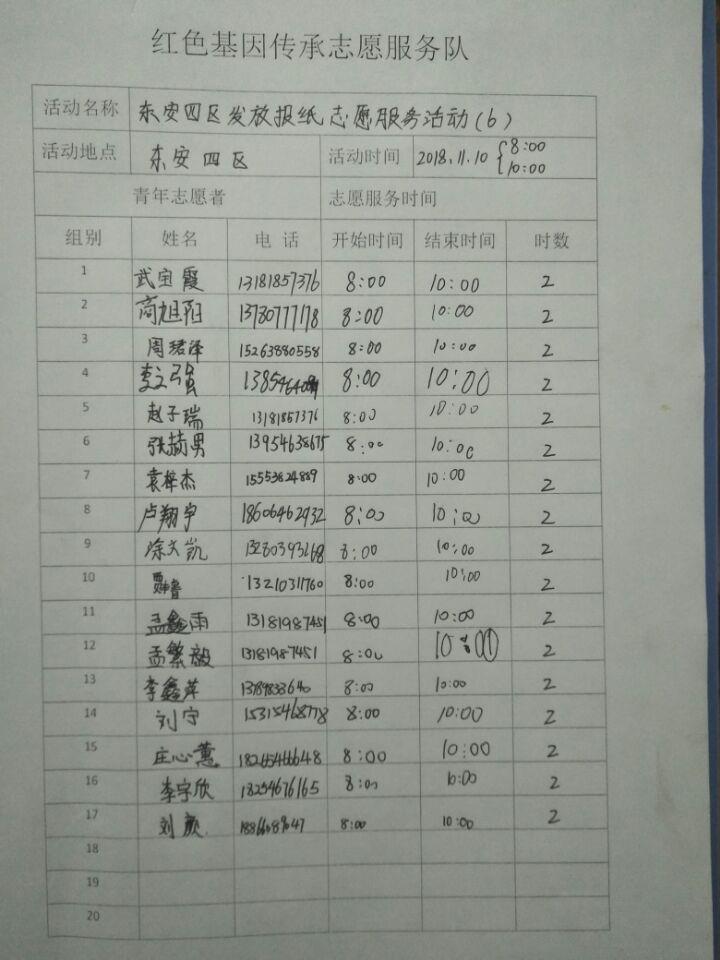 红色基因传承志愿服务队
活动名称 东安四区发放报纸志愿服务活动(6)
活动地点 东安四区 活动时间 2018.11.10 {8:00 10:00
青年志愿者 志愿服务时间
组别 姓名 电话 开始时间 结束时间 时数
1 武宝霞 13181857376 8:00 10:00 2
2 商旭阳 13780777178 8:00 10:00 2
3 周珺泽 15263880558 8:00 10:00 2
4 李文强 8:00 10:00 2
5 赵子瑞 13181857376 8:00 10:00 2
6 张赫男 13954638675 8:00 10:00 2
7 袁梓杰 15553824889 8:00 10:00 2
8 卢翔宇 18606462932 8:00 10:00 2
9 徐文凯 13280393268 8:00 10:00 2
10 13210311760 8:00 10:00 2
11 孟鑫雨 13181987451 8:00 10:00 2
12 孟繁毅 13181987451 8:00 10:00 2
13 李鑫萍 8:00 10:00 2
14 刘宁 15315468778 8:00 10:00 2
15 庄心蕙 18265466648 8:00 10:00 2
16 李宇欣 18254676165 8:00 10:00 2
17 刘颜 8:00 10:00 2
18
19
20